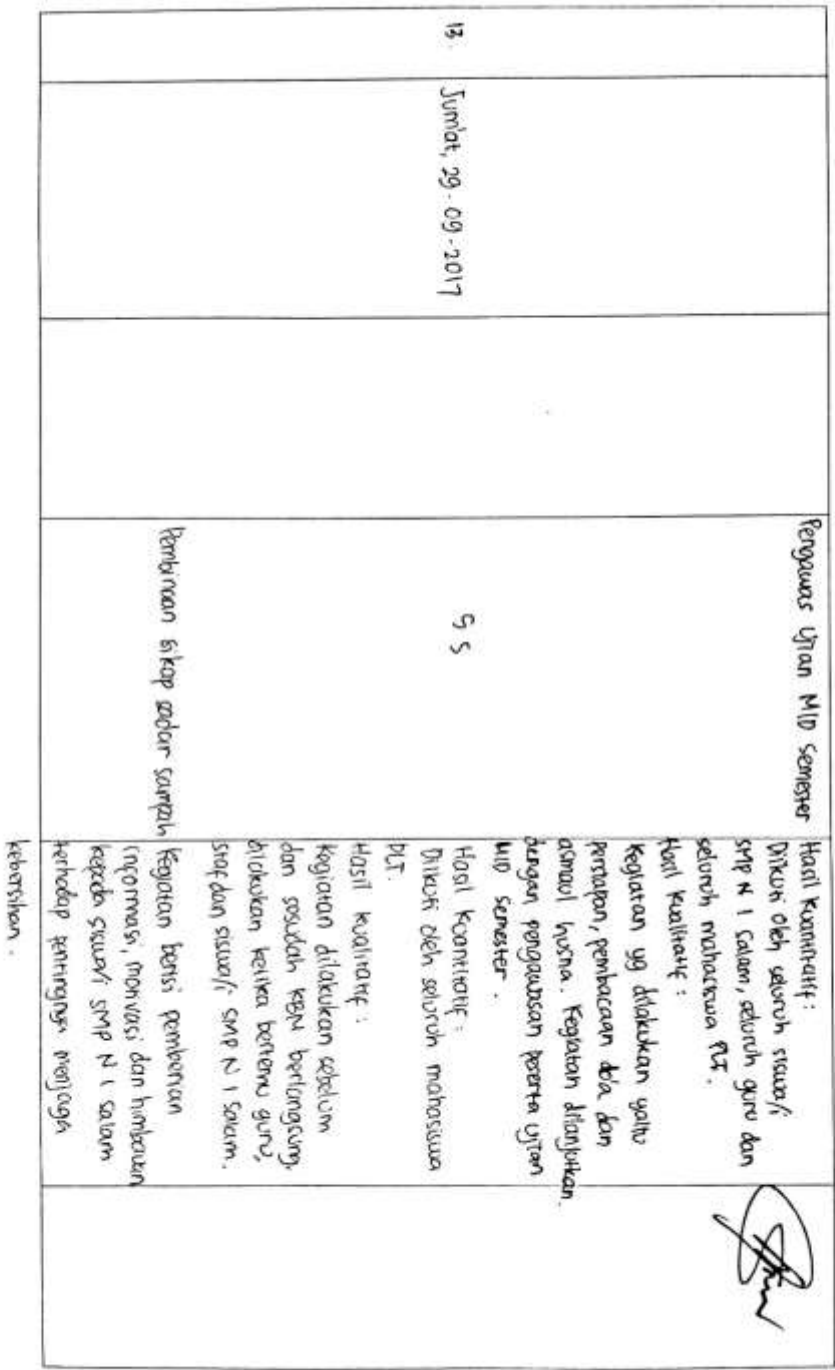 Pengawas Ujian MID Semester
Hasil Kuantitatif :
Diikuti oleh seluruh siswa/i
SMP N 1 Salam, seluruh guru dan
seluruh mahasiswa PLT.
Hasil Kualitatif :
Kegiatan yg dilakukan yaitu
persiapan, pembacaan do'a dan
asmaul husna. Kegiatan dilanjutkan
dengan pengawasan peserta ujian
MID Semester.
13.
Jum'at, 29-09-2017
5 S
Hasil Kuantitatif :
Diikuti oleh seluruh mahasiswa
PLT.
Hasil Kualitatif :
Kegiatan dilakukan sebelum
dan sesudah KBM berlangsung,
dilakukan ketika bertemu guru,
staf dan siswa/i SMP N 1 Salam.
Pembinaan sikap sadar sampah
Kegiatan berisi pemberian
informasi, motivasi dan himbauan
kepada siswa/i SMP N 1 Salam
terhadap pentingnya menjaga
kebersihan.